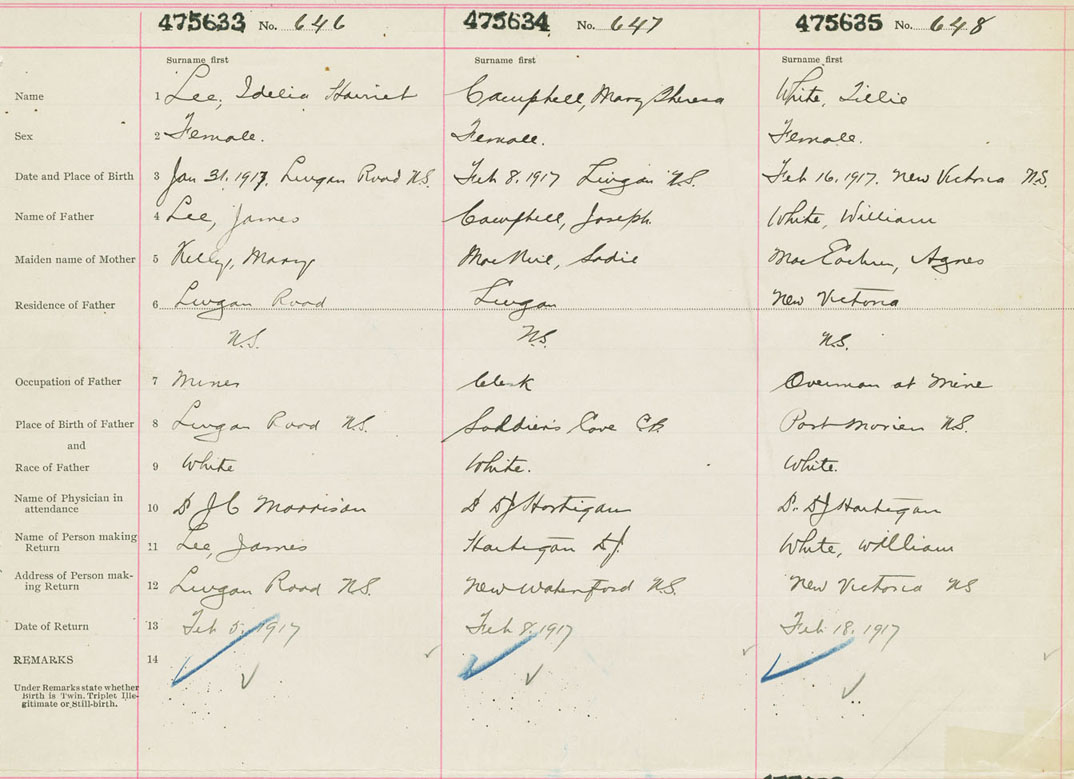 475633 No. 646 475634 No. 647 475635 No. 648
Surname first Surname first Surname first
Name 1 Lee, Idelia Harriet Campbell, Mary Theresa White, Tillie
Sex 2 Female. Female. Female.
Date and Place of Birth 3 Jan 31. 1917, Lingan Road N.S. Feb 8. 1917 Lingan N.S. Feb 16. 1917. New Victoria N.S.
Name of Father 4 Lee, James Campbell, Joseph. White, William
Maiden name of Mother 5 Kelly, Mary MacNeil, Sadie MacEachern, Agnes
Residence of Father 6 Lingan Road Lingan New Victoria
N.S. N.S. N.S.
Occupation of Father 7 Miner Clerk Overman at Mine
Place of Birth of Father 8 Lingan Road N.S. Soldier's Cove C.B. Port Morien N.S.
and
Race of Father 9 White White. White.
Name of Physician in
attendance 10 D J C Morrison D DJ Hartigan D. DJ Hartigan
Name of Person making
Return 11 Lee, James Hartigan DJ. White, William
Address of Person mak-
ing Return 12 Lingan Road N.S. New Waterford N.S. New Victoria NS
Date of Return 13 Feb 5. 1917 Feb 8. 1917 Feb 18. 1917
REMARKS 14
Under Remarks state whether
Birth is Twin. Triplet Ille-
gitimate or Still-birth.